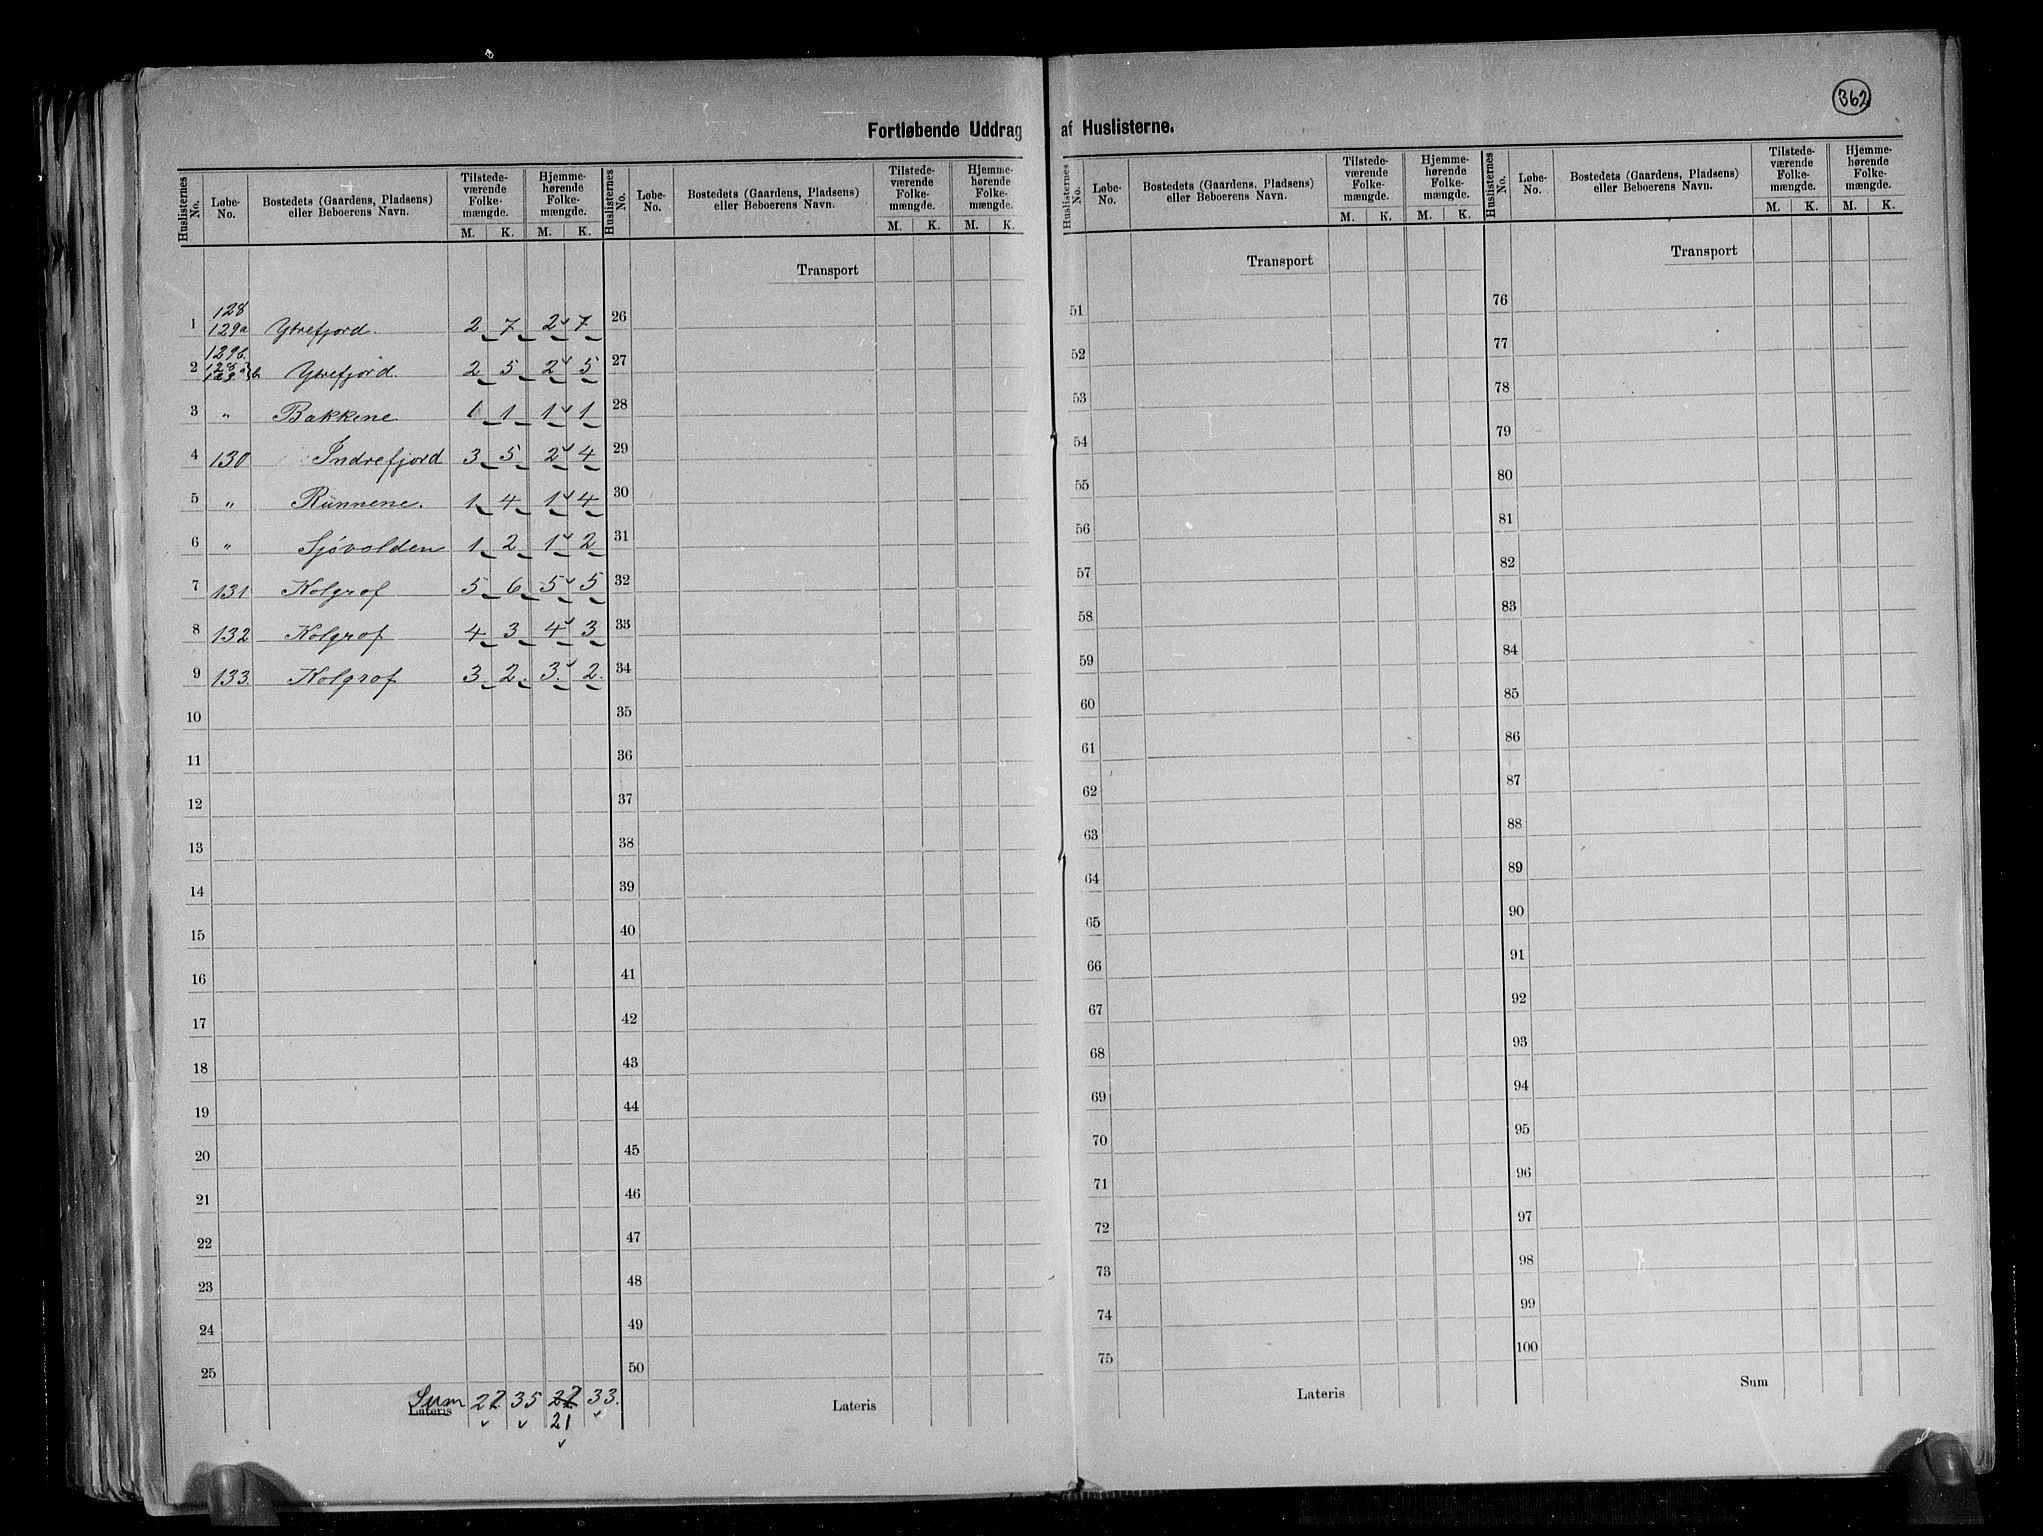 362
Fortløbende Uddrag af Huslisterne.
Huslisternes No. | Løbe-No. | Bostedets (Gaardens, Pladsens) eller Beboerens Navn. | Tilstede-værende Folke-mængde. M. K. | Hjemme-hørende Folke-mængde. M. K.
Huslisternes No. | Løbe-No. | Bostedets (Gaardens, Pladsens) eller Beboerens Navn. | Tilstede-værende Folke-mængde. M. K. | Hjemme-hørende Folke-mængde. M. K.
Huslisternes No. | Løbe-No. | Bostedets (Gaardens, Pladsens) eller Beboerens Navn. | Tilstede-værende Folke-mængde. M. K. | Hjemme-hørende Folke-mængde. M. K.
Huslisternes No. | Løbe-No. | Bostedets (Gaardens, Pladsens) eller Beboerens Navn. | Tilstede-værende Folke-mængde. M. K. | Hjemme-hørende Folke-mængde. M. K.
128
1 129a Ytrefjord. 2 7 2 7
129b.
2 Ytrefjord. 2 5 2 5
3 " Bakkene 1 1 1 1
4 130 Indrefjord 3 5 2 4
5 " Runnene. 1 4 1 4
6 " Sjøvolden 1 2 1 2
7 131 Kolgrof 5 6 5 5
8 132 Kolgrof 4 3 4 3
9 133. Kolgrof 3. 2. 3. 2.
10
11
12
13
14
15
16
17
18
19
20
21
22
23
24
25
Sum 22 35 22 33.
Lateris
21
Transport
26
27
28
29
30
31
32
33
34
35
36
37
38
39
40
41
42
43
44
45
46
47
48
49
50
Lateris
Transport
51
52
53
54
55
56
57
58
59
60
61
62
63
64
65
66
67
68
69
70
71
72
73
74
75
Lateris
Transport
76
77
78
79
80
81
82
83
84
85
86
87
88
89
90
91
92
93
94
95
96
97
98
99
100
Sum